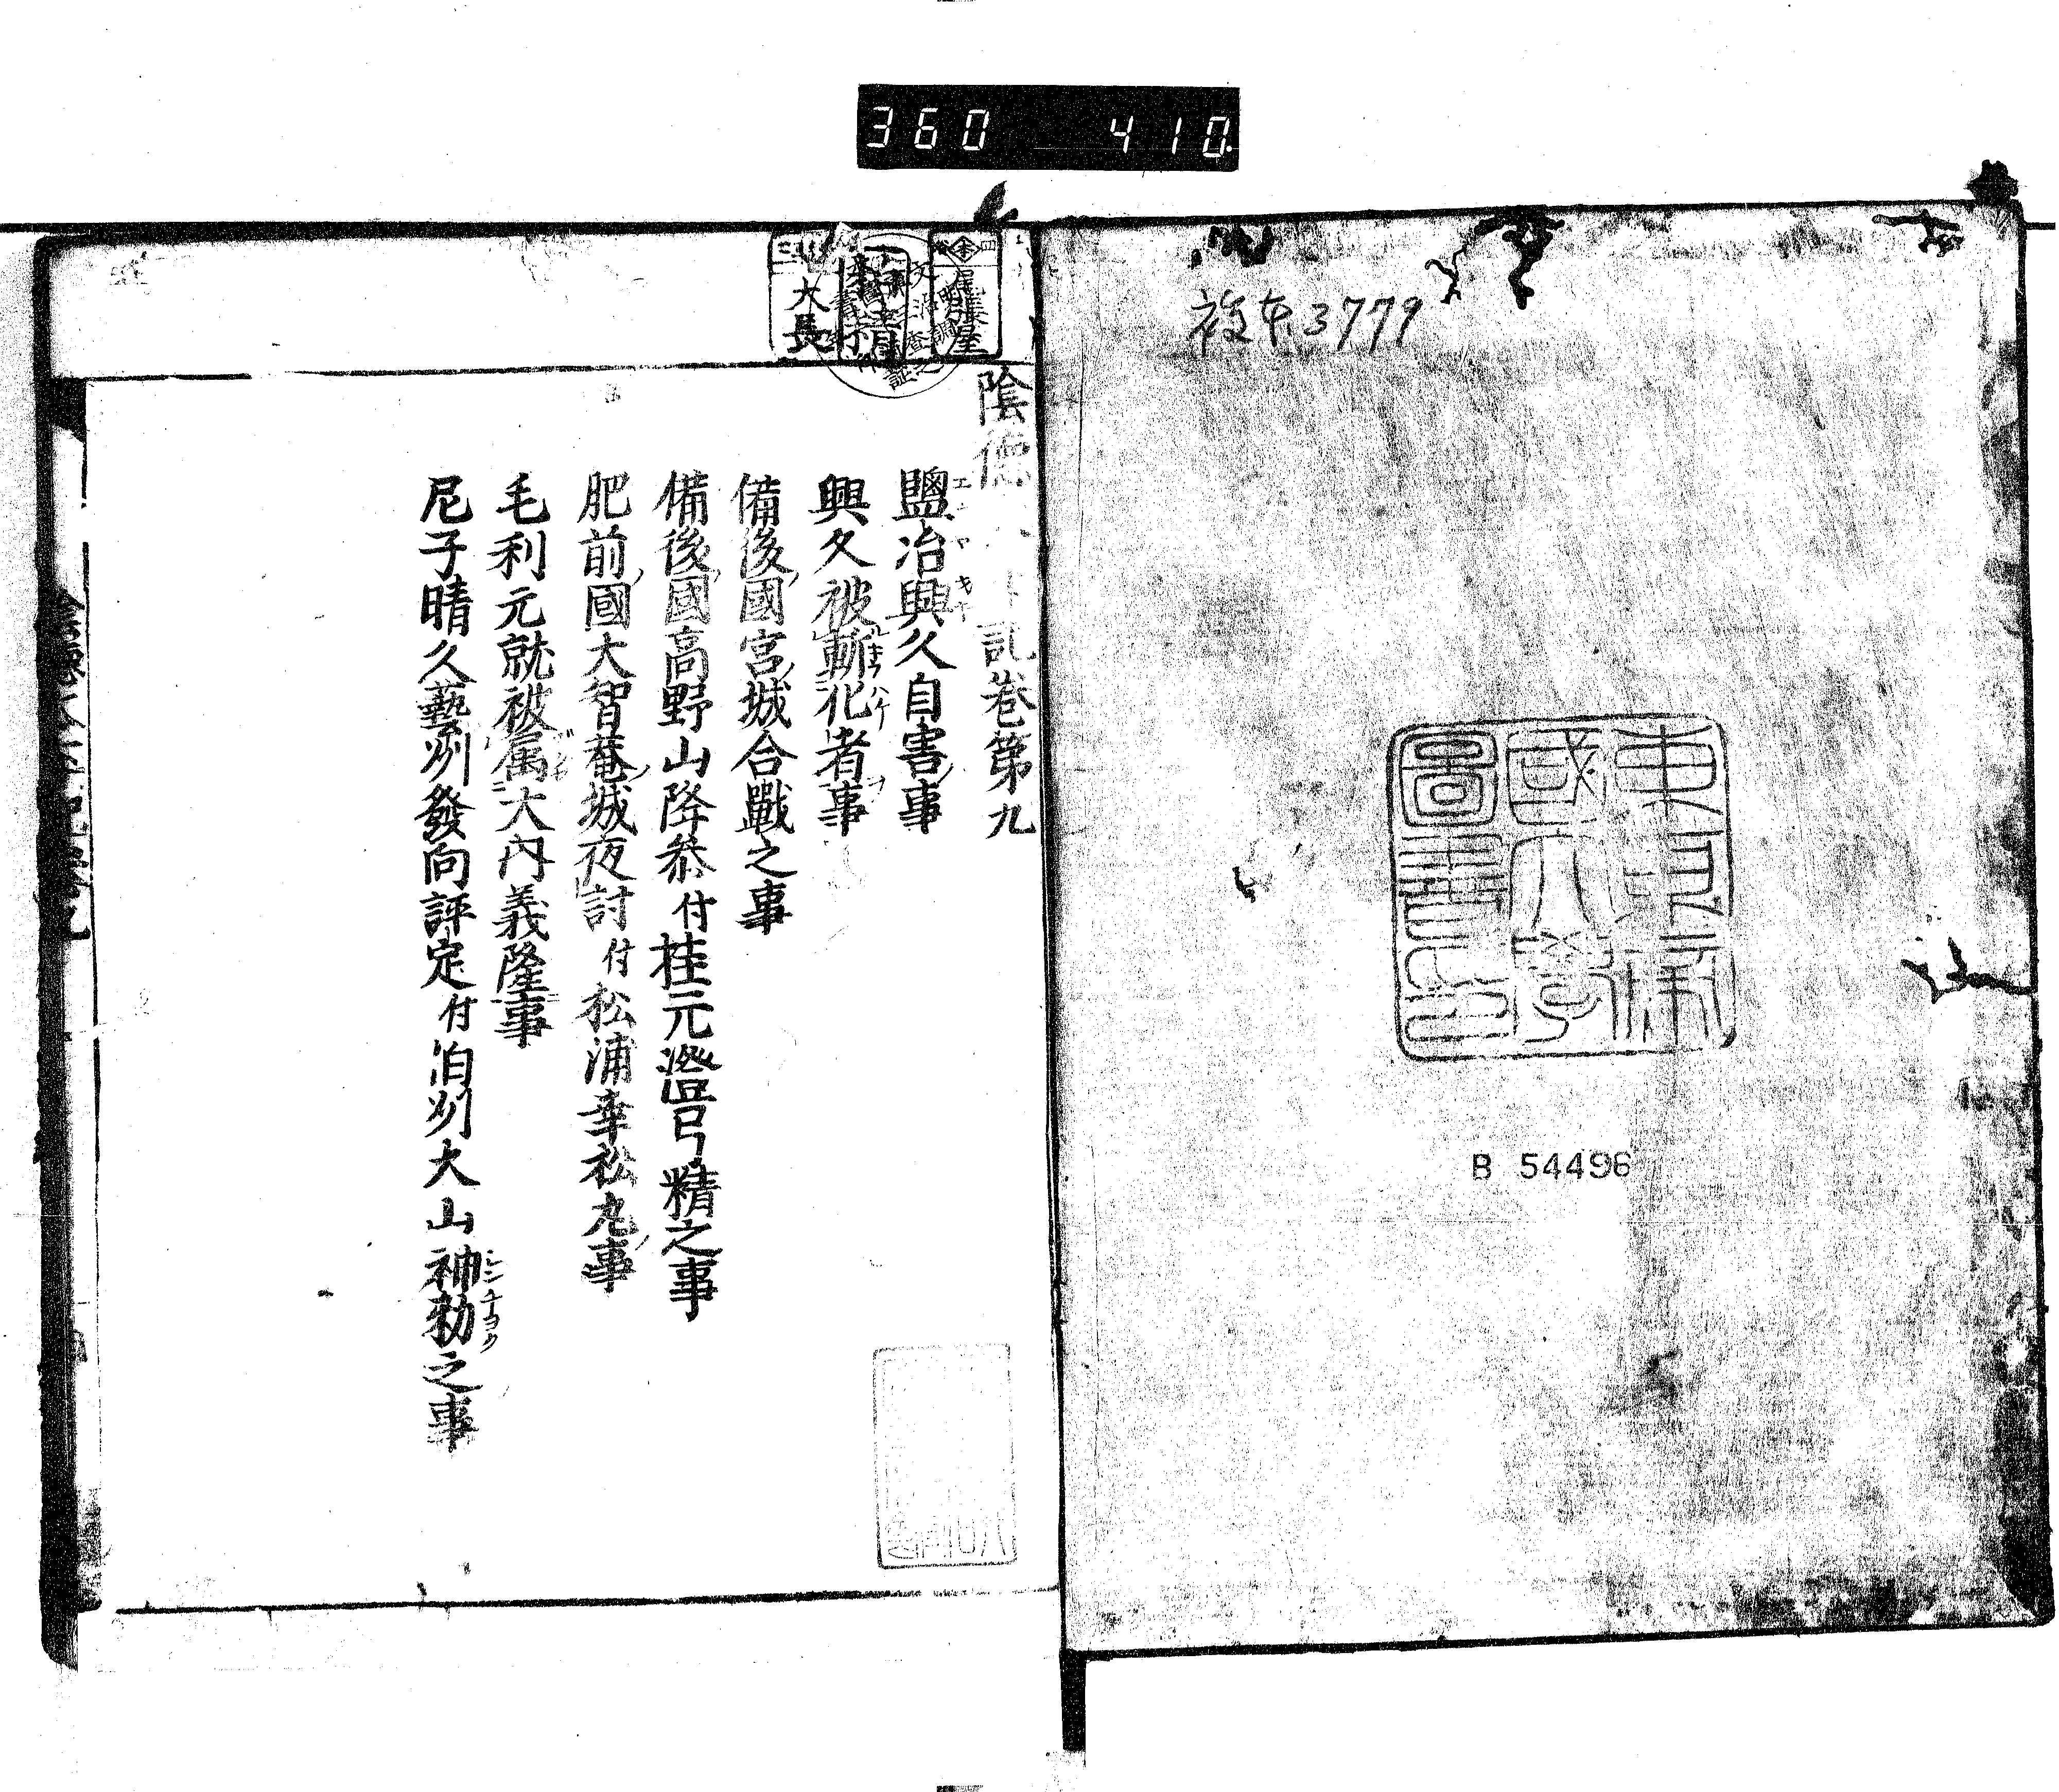 360 410
複本3779
東京帝
國大學
圖書印
B 54496
尾張屋
大長
陰德
記卷第九
鹽冶興久自害事
興久被斬化者事
備後國宮城合戰之事
備後國高野山降叅付桂元澄弓精之事
肥前國大智菴城夜討付松浦幸松丸事
毛利元就被属大內義隆事
尼子晴久藝州發向評定付泊州大山神勅之事